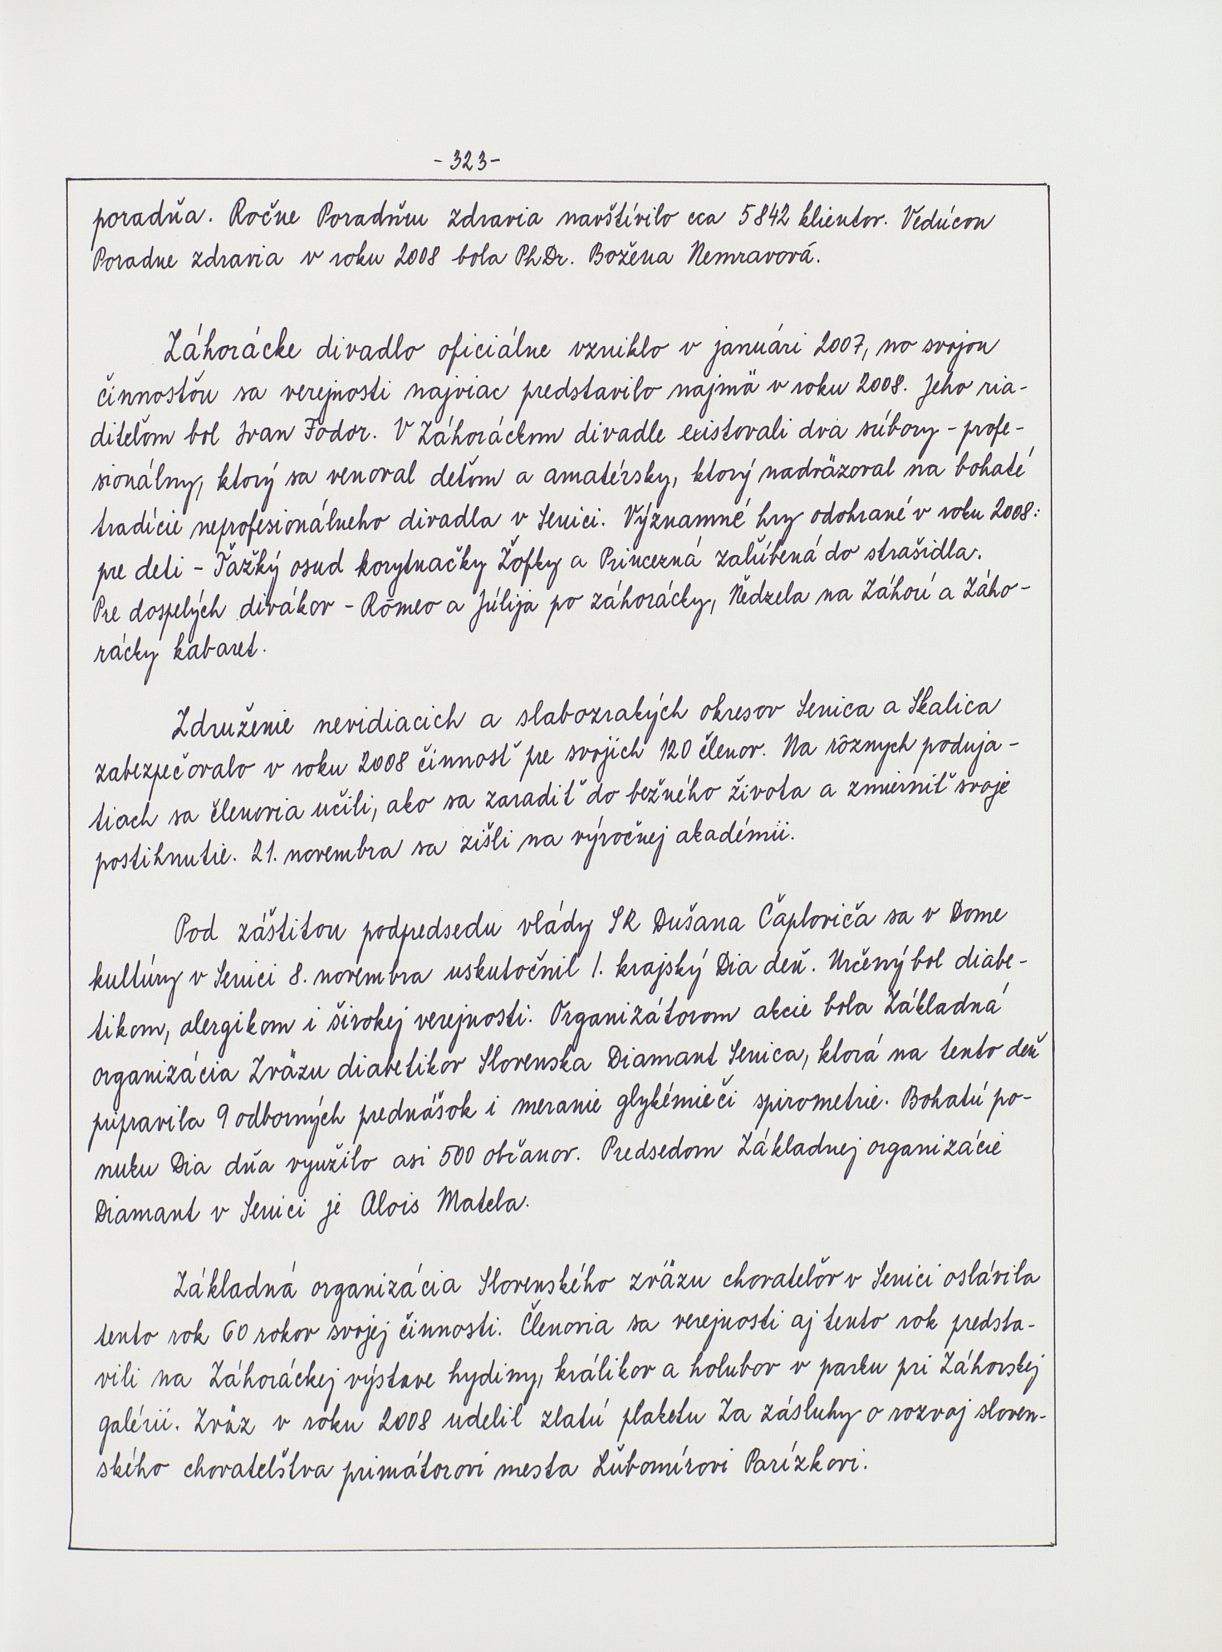 -323-
poradňa. Ročne Poradňu zdravia navštívilo cca 5842 klientov. Vedúcou
Poradne zdravia v roku 2008 bola PhDr. Božena Nemravová.
Záhorácke divadlo oficiálne vzniklo v januári 2007, no svojou
činnosťou sa verejnosti najviac predstavilo najmä v roku 2008. Jeho ria-
diteľom bol Ivan Fodor. V Záhoráckom divadle existovali dva súbory - profe-
sionálny, ktorý sa venoval deťom a amatérsky, ktorý nadväzoval na bohaté
tradície neprofesionálneho divadla v Senici. Významné hry odohrané v roku 2008:
pre deti - Ťažký osud korytnačky Žofky a Princezná zaľúbená do strašidla.
Pre dospelých divákov - Rómeo a Júlija po záhorácky, Neďzela na Záhorí a Záho-
rácky kabaret.
Združenie nevidiacich a slabozrakých okresov Senica a Skalica
zabezpečovalo v roku 2008 činnosť pre svojich 120 členov. Na rôznych poduja-
tiach sa členovia učili, ako sa zaradiť do bežného života a zmierniť svoje
postihnutie. 21. novembra sa zišli na výročnej akadémii.
Pod záštitou podpredsedu vlády SR Dušana Čaploviča sa v Dome
kultúry v Senici 8. novembra uskutočnil 1. krajský Dia deň. Určený bol diabe-
tikom, alergikom i širokej verejnosti. Organizátorom akcie bola Základná
organizácia Zväzu diabetikov Slovenska Diamant Senica, ktorá na tento deň
pripravila 9 odborných prednášok i meranie glykémie či spirometrie. Bohatú po-
nuku Dia dňa využilo asi 500 občanov. Predsedom Základnej organizácie
Diamant v Senici je Alois Matela.
Základná organizácia Slovenského zväzu chovateľov v Senici oslávila
tento rok 60 rokov svojej činnosti. Členovia sa verejnosti aj tento rok predsta-
vili na Záhoráckej výstave hydiny, králikov a holubov v parku pri Záhorskej
galérii. Zväz v roku 2008 udelil zlatú plaketu Za zásluhy o rozvoj sloven-
ského chovateľstva primátorovi mesta Ľubomírovi Parízkovi.